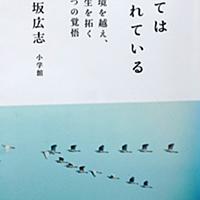 ては
れている
境を越え、
生を拓く
つの覚悟
坂広志
小学館